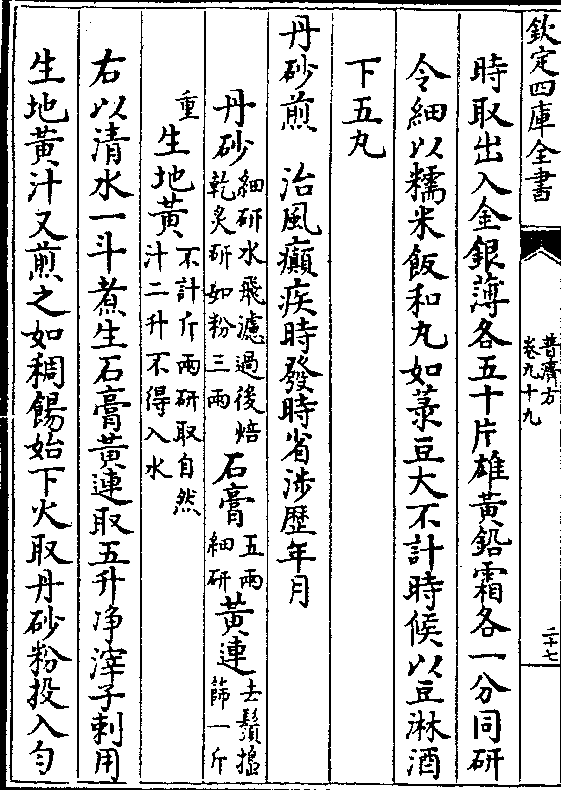 欽定四庫全書
普濟方
卷九十九
二十七
時取出入金銀薄各五十片雄黃鉛霜各一分同研
令細以糯米飯和丸如菉豆大不計時候以豆淋酒
下五丸
丹砂煎 治風癲疾時發時省涉歷年月
丹砂細研水飛濾過後焙乾炙研如粉三兩 石膏五兩細研 黃連去鬚搗篩一斤
重 生地黃不計斤兩研取自然汁二升不得入水
右以清水一斗煮生石膏黃連取五升净滓子剌用
生地黃汁又煎之如稠餳始下火取丹砂粉投入勻